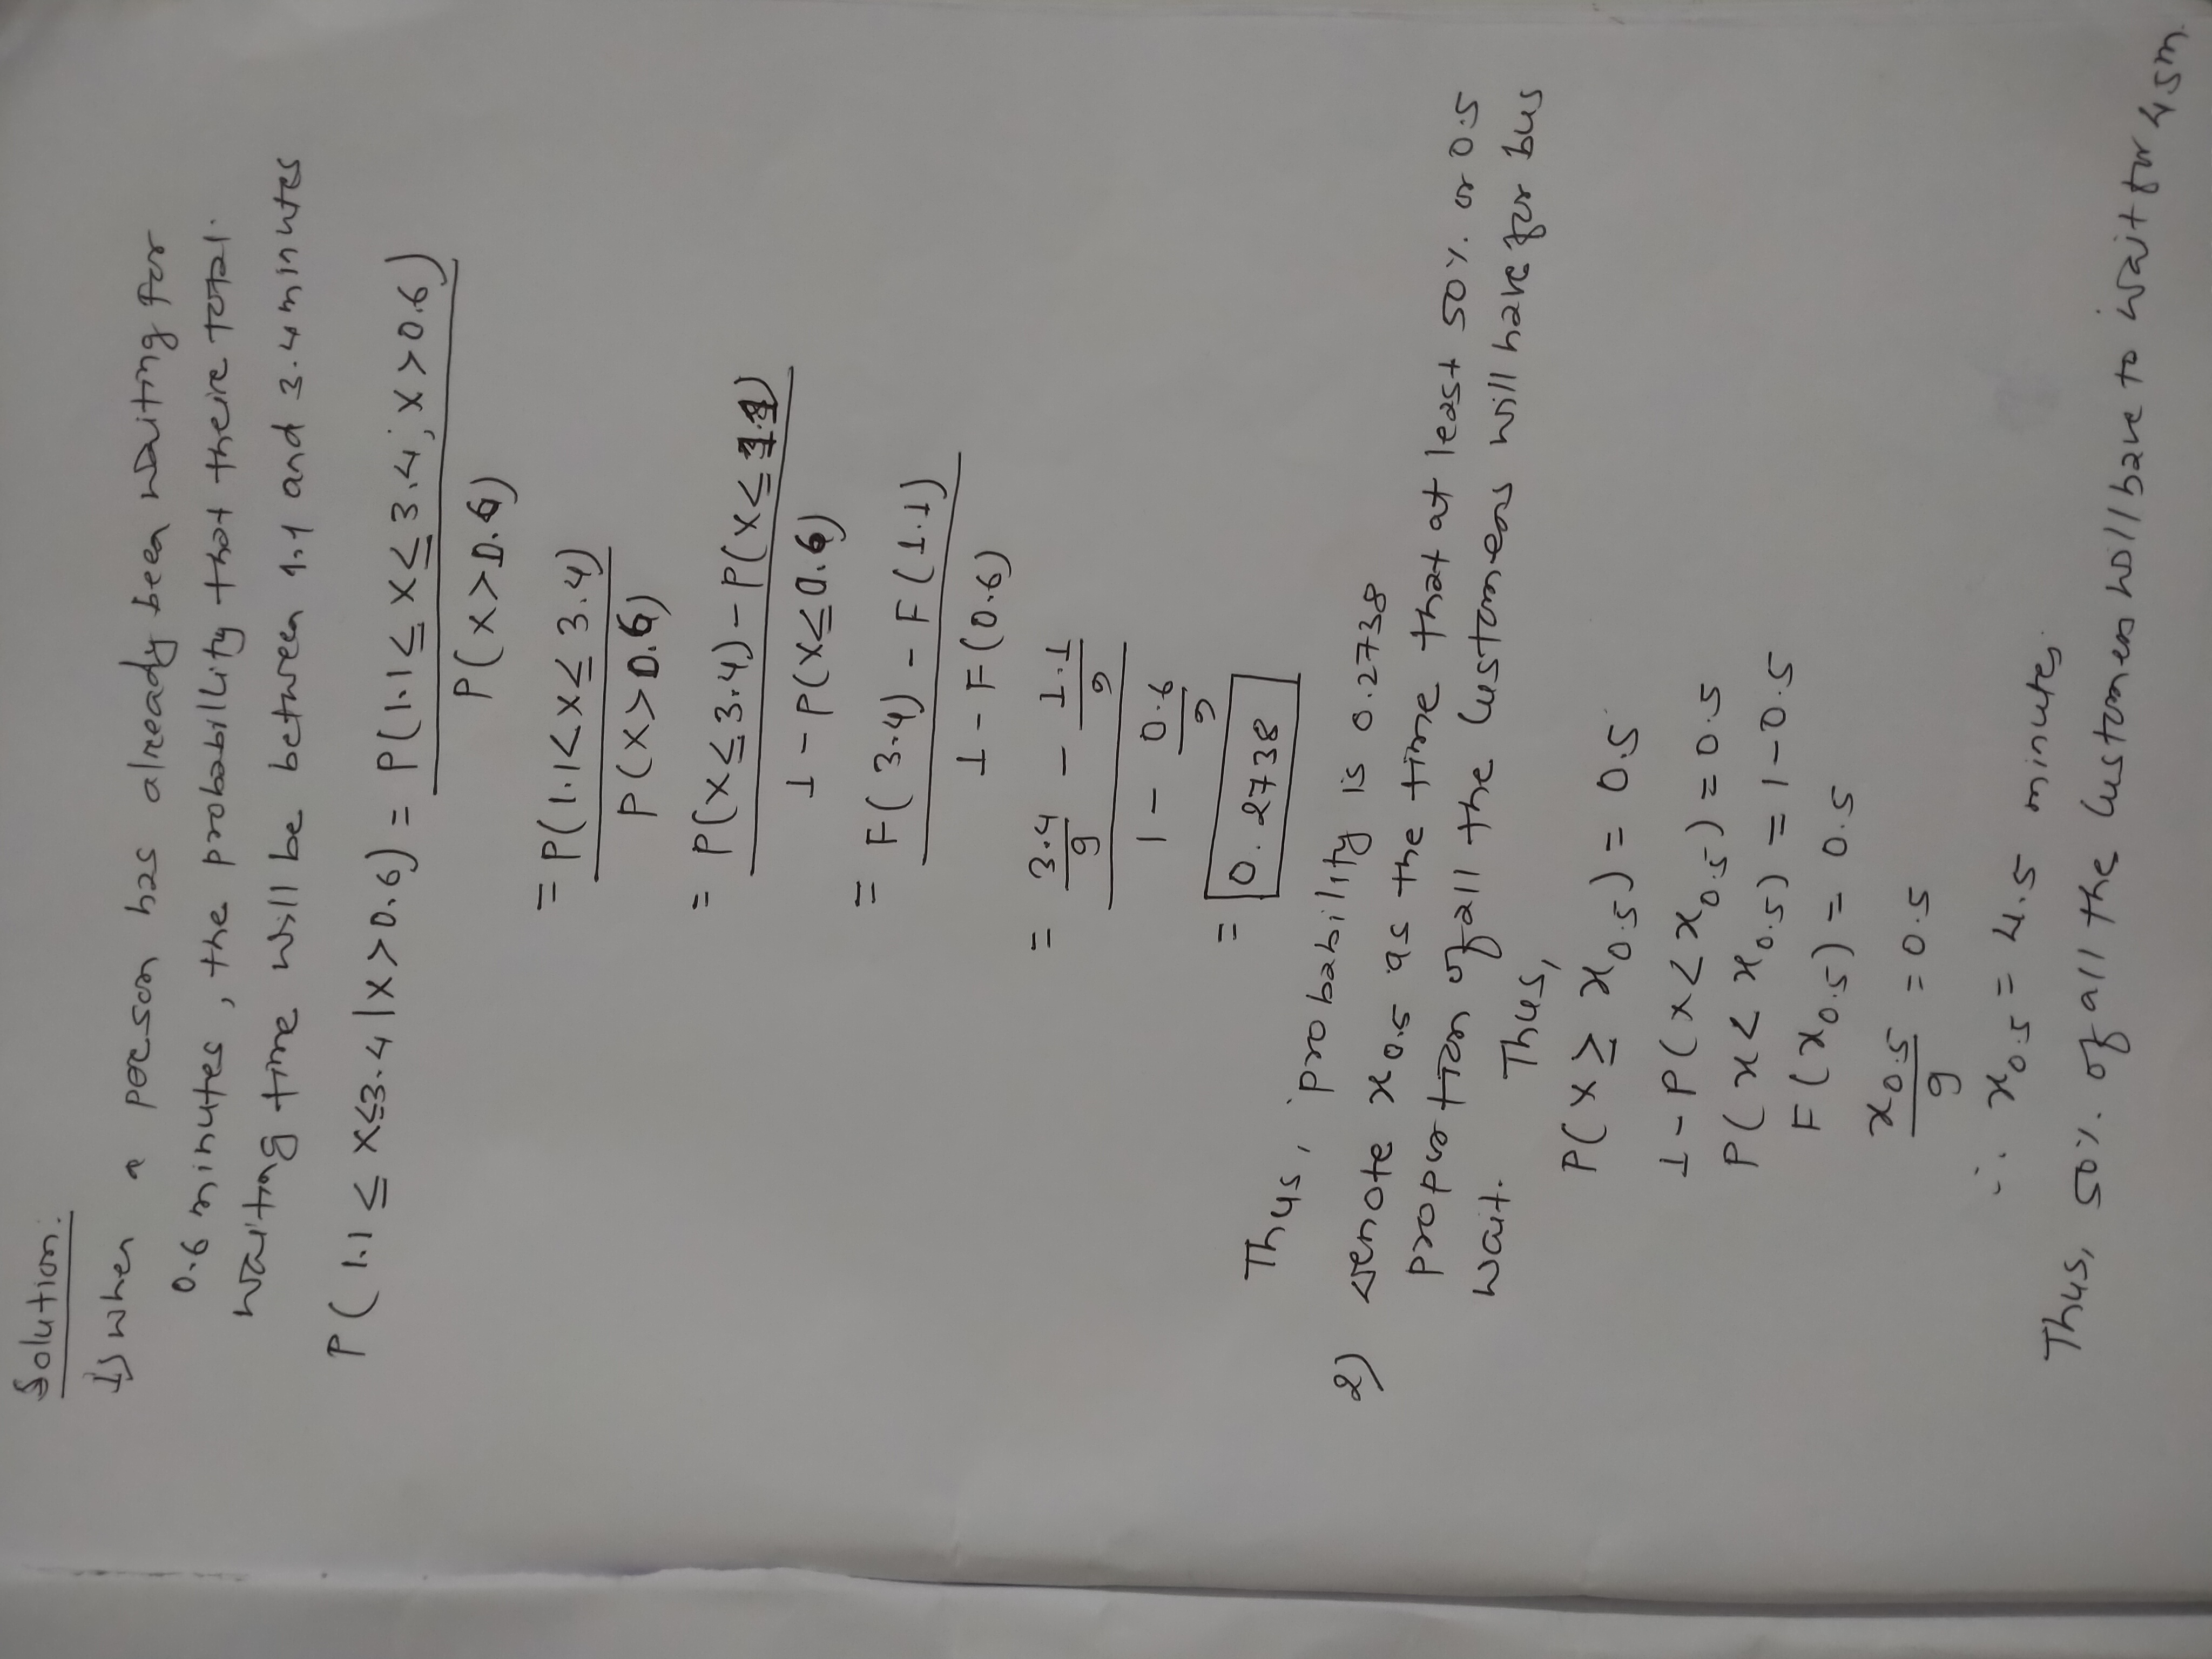 Solution:
1) when a person has already been waiting for
0.6 minutes, the probability that their total
waiting time will be between 1.1 and 3.4 minutes
P(1.1 ≤ X ≤ 3.4 | X > 0.6) = P(1.1 ≤ X ≤ 3.4, X > 0.6)
P(X > 0.6)
= P(1.1 < X ≤ 3.4)
P(X > 0.6)
= P(X ≤ 3.4) - P(X ≤ 1.1)
1 - P(X ≤ 0.6)
= F(3.4) - F(1.1)
1 - F(0.6)
= 3.4/9 - 1.1/9
1 - 0.6/9
= 0.2738
Thus, probability is 0.2738
2) denote x0.5 as the time that at least 50% or 0.5
proportion of all the customers will have for bus
wait. Thus,
P(X ≥ x0.5) = 0.5
1 - P(X < x0.5) = 0.5
P(x < x0.5) = 1 - 0.5
F(x0.5) = 0.5
x0.5/9 = 0.5
∴ x0.5 = 4.5 minutes.
Thus, 50% of all the customers will have to wait for 4.5m.